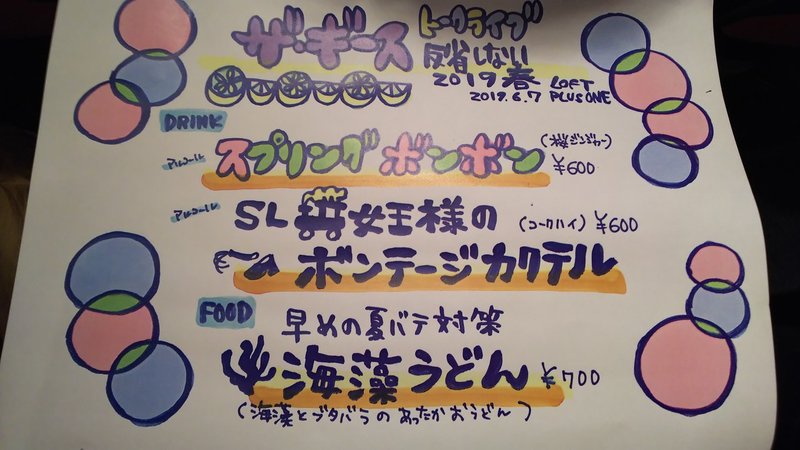 ザ・ギース トークライブ
反省しない
2019春 LOFT
2019.6.7 PLUSONE
DRINK
アルコール スプリングボンボン ¥600
アルコール SL 女王様の (コークハイ) ¥600
ボンテージカクテル
FOOD
早めの夏バテ対策
海藻うどん ¥700
(海藻とブタバラのあったかおうどん)